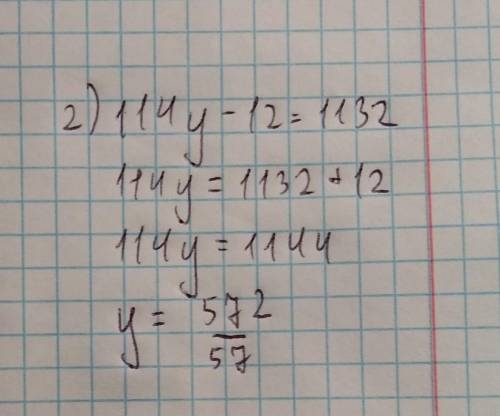 2) 114y - 12 = 1132
114y = 1132 + 12
114y = 1144
y = 572/57